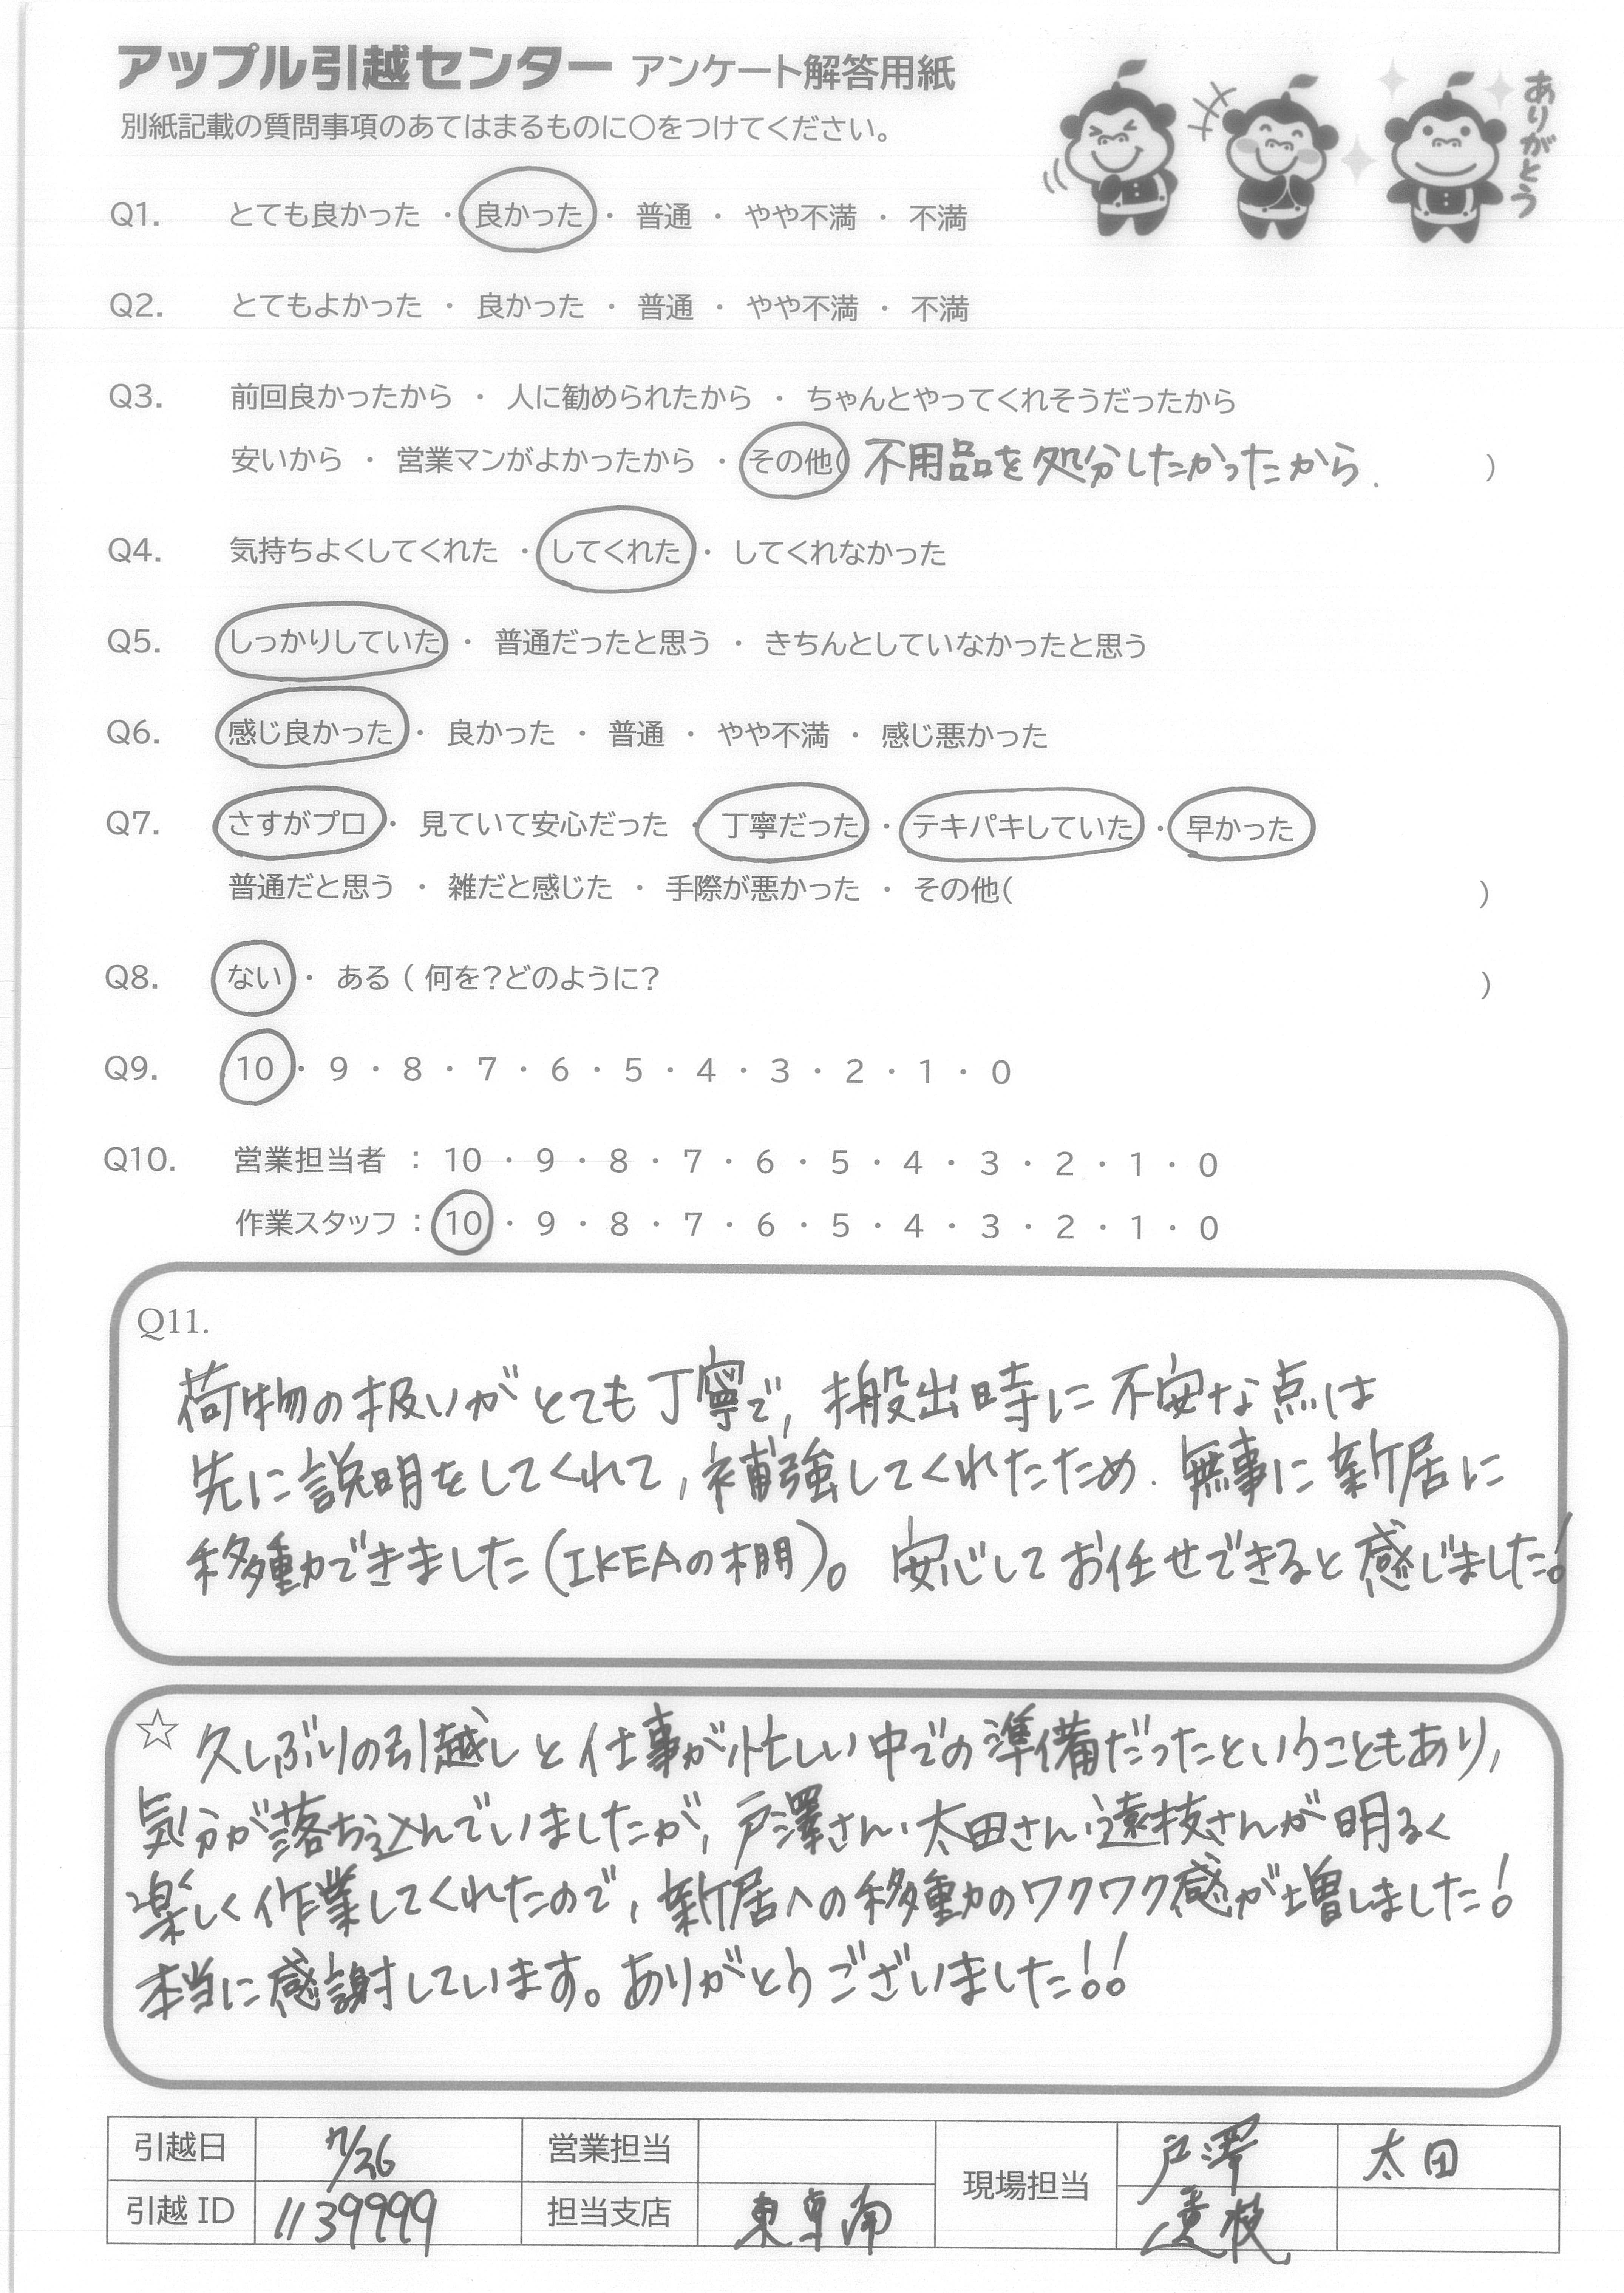 アップル引越センター アンケート解答用紙
別紙記載の質問事項のあてはまるものに○をつけてください。
ありがとう
Q1. とても良かった ・ 良かった ・ 普通 ・ やや不満 ・ 不満
Q2. とてもよかった ・ 良かった ・ 普通 ・ やや不満 ・ 不満
Q3. 前回良かったから ・ 人に勧められたから ・ ちゃんとやってくれそうだったから
安いから ・ 営業マンがよかったから ・ その他( 不用品を処分したかったから. )
Q4. 気持ちよくしてくれた ・ してくれた ・ してくれなかった
Q5. しっかりしていた ・ 普通だったと思う ・ きちんとしていなかったと思う
Q6. 感じ良かった ・ 良かった ・ 普通 ・ やや不満 ・ 感じ悪かった
Q7. さすがプロ ・ 見ていて安心だった ・ 丁寧だった ・ テキパキしていた ・ 早かった
普通だと思う ・ 雑だと感じた ・ 手際が悪かった ・ その他( )
Q8. ない ・ ある ( 何を?どのように? )
Q9. 10 ・ 9 ・ 8 ・ 7 ・ 6 ・ 5 ・ 4 ・ 3 ・ 2 ・ 1 ・ 0
Q10. 営業担当者 : 10 ・ 9 ・ 8 ・ 7 ・ 6 ・ 5 ・ 4 ・ 3 ・ 2 ・ 1 ・ 0
作業スタッフ : 10 ・ 9 ・ 8 ・ 7 ・ 6 ・ 5 ・ 4 ・ 3 ・ 2 ・ 1 ・ 0
Q11.
荷物の扱いがとても丁寧で, 搬出時に不安な点は
先に説明をしてくれて, 補強してくれたため. 無事に新居に
移動できました(IKEAの棚)。安心してお任せできると感じました!
☆ 久しぶりの引越しと仕事が忙しい中での準備だったということもあり,
気分が落ち込んでいましたが, 戸澤さん・太田さん・遠枝さんが明るく
楽しく作業してくれたので, 新居への移動のワクワク感が増しました!
本当に感謝しています。ありがとうございました!!
引越日 7/26 営業担当 現場担当 戸澤 太田
引越 ID 1139999 担当支店 東京南 遠枝